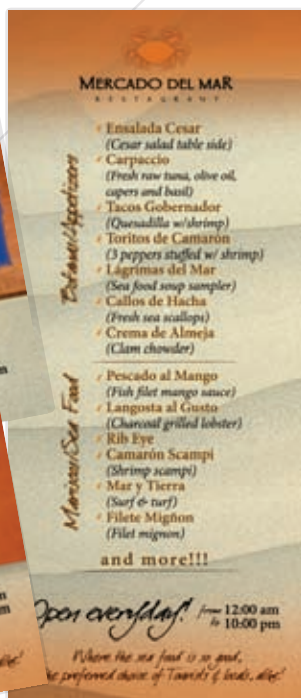 MERCADO DEL MAR
RESTAURANT
Botanas/Appetizers
Ensalada Cesar
(Cesar salad table side)
Carpaccio
(Fresh raw tuna, olive oil,
capers and basil)
Tacos Gobernador
(Quesadilla w/shrimp)
Toritos de Camarón
(3 peppers stuffed w/ shrimp)
Lágrimas del Mar
(Sea food soup sampler)
Callos de Hacha
(Fresh sea scallops)
Crema de Almeja
(Clam chowder)
Mariscos/Sea Food
Pescado al Mango
(Fish filet mango sauce)
Langosta al Gusto
(Charcoal grilled lobster)
Rib Eye
Camarón Scampi
(Shrimp scampi)
Mar y Tierra
(Surf & turf)
Filete Migñon
(Filet mignon)
and more!!!
Open everyday! from 12:00 am
to 10:00 pm
Where the sea food is so good,
preferred choice of Tourists & locals, alike!